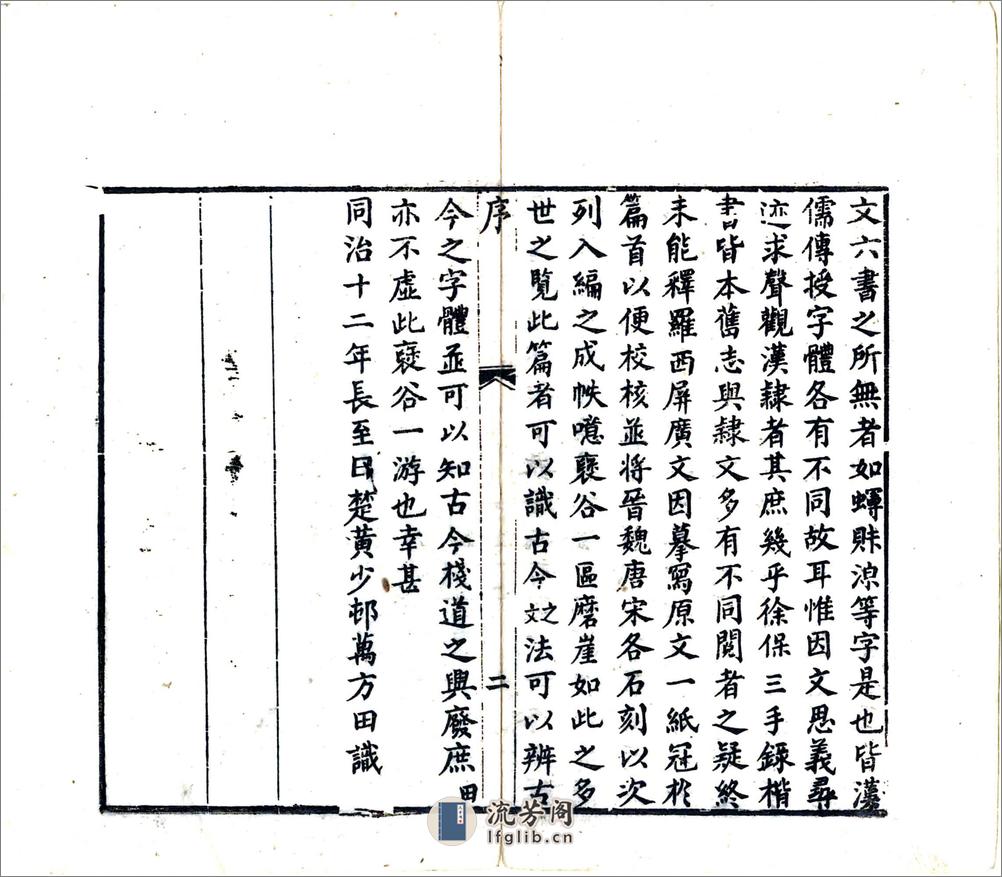 文六書之所無者如蟳賍湶等字是也皆漢
儒傳授字體各有不同故耳惟因文思義尋
迹求聲觀漢隸者其庶幾乎徐保三手錄楷
書皆本舊志與隸文多有不同閱者之疑終
未能釋羅西屏廣文因摹寫原文一紙冠於
篇首以便校核並將晉魏唐宋各石刻以次
列入編之成帙噫褎谷一區磨崖如此之多
世之覽此篇者可以識古今文之法可以辨古
序
二
今之字體並可以知古今棧道之興廢庶田
亦不虛此褎谷一游也幸甚
同治十二年長至日楚黃少邨萬方田識
流芳阁
lfglib.cn